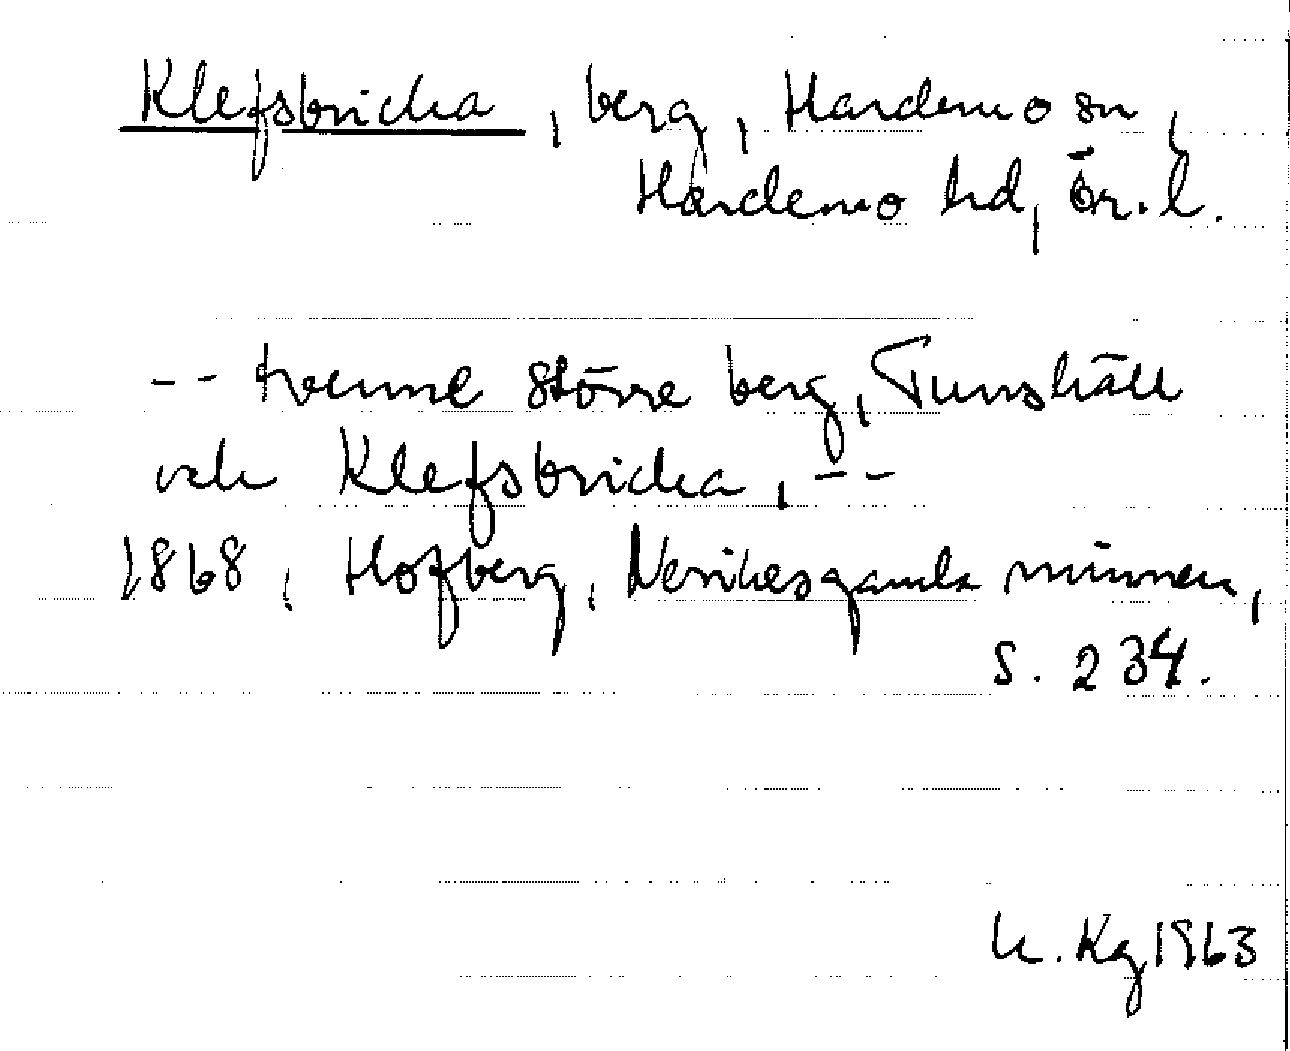 Klefsbricka, berg, Hardemo sn,
Hardemo hd, Ör.l.
-- tvenne större berg, Tunshäll
och Klefsbricka, --
1868, Hofberg, Nerikes gamla minnen,
s. 234.
K. Kg 1963